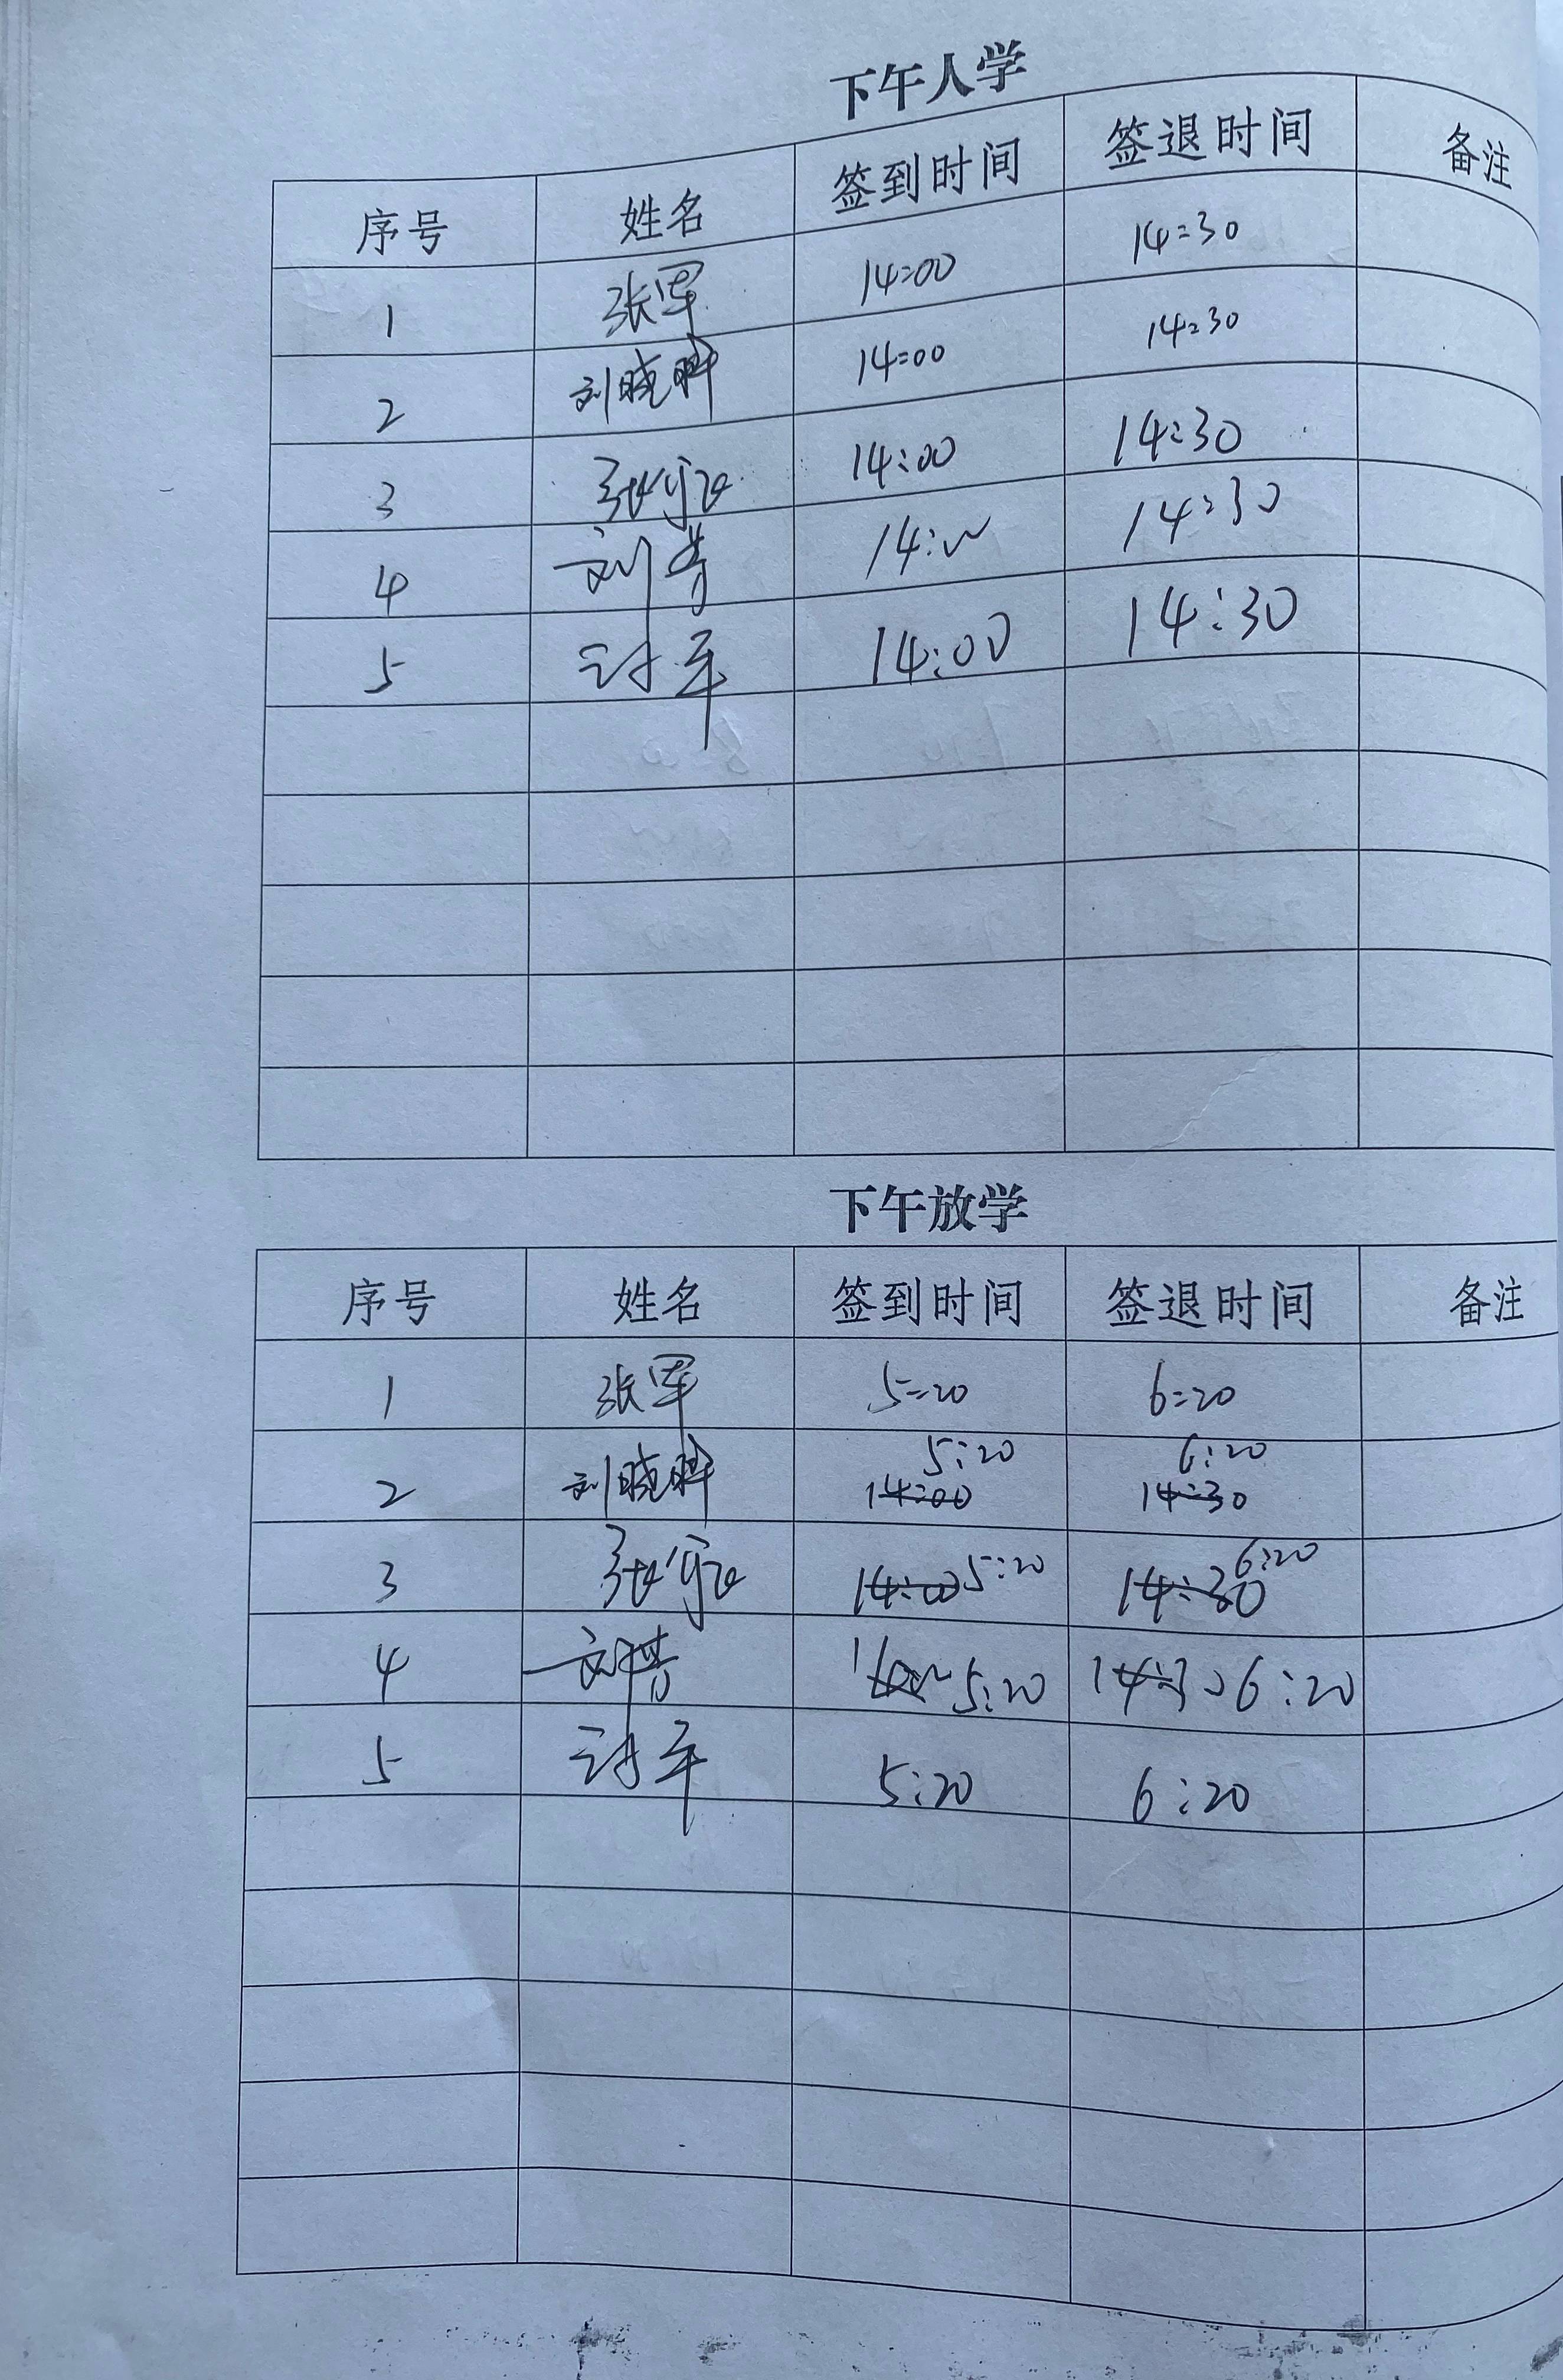 下午入学
序号 姓名 签到时间 签退时间 备注
1 张军 14:00 14:30
2 刘晓晔 14:00 14:30
3 14:00 14:30
4 刘芳 14:00 14:30
5 14:00 14:30
下午放学
序号 姓名 签到时间 签退时间 备注
1 张军 5:20 6:20
5:20 6:20
2 刘晓晔 14:00 14:30
3 14:00 5:20 14:30 6:20
4 刘芳 5:20 14:30 6:20
5 5:20 6:20